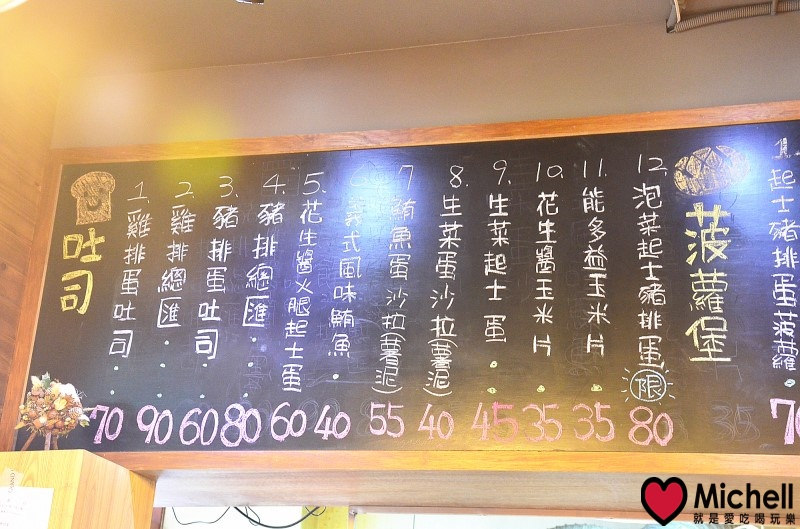 吐司
1. 雞排蛋吐司 70
2. 雞排總匯 90
3. 豬排蛋吐司 60
4. 豬排總匯 80
5. 花生醬火腿起士蛋 60
義式風味鮪魚 40
7. 鮪魚蛋沙拉(薯泥) 55
8. 生菜蛋沙拉(薯泥) 40
9. 生菜起士蛋 45
10. 花生醬玉米片 35
11. 能多益玉米片 35
12. 泡菜起士豬排蛋 限 80
菠蘿堡
1. 起士豬排蛋菠蘿
Michell
就是愛吃喝玩樂